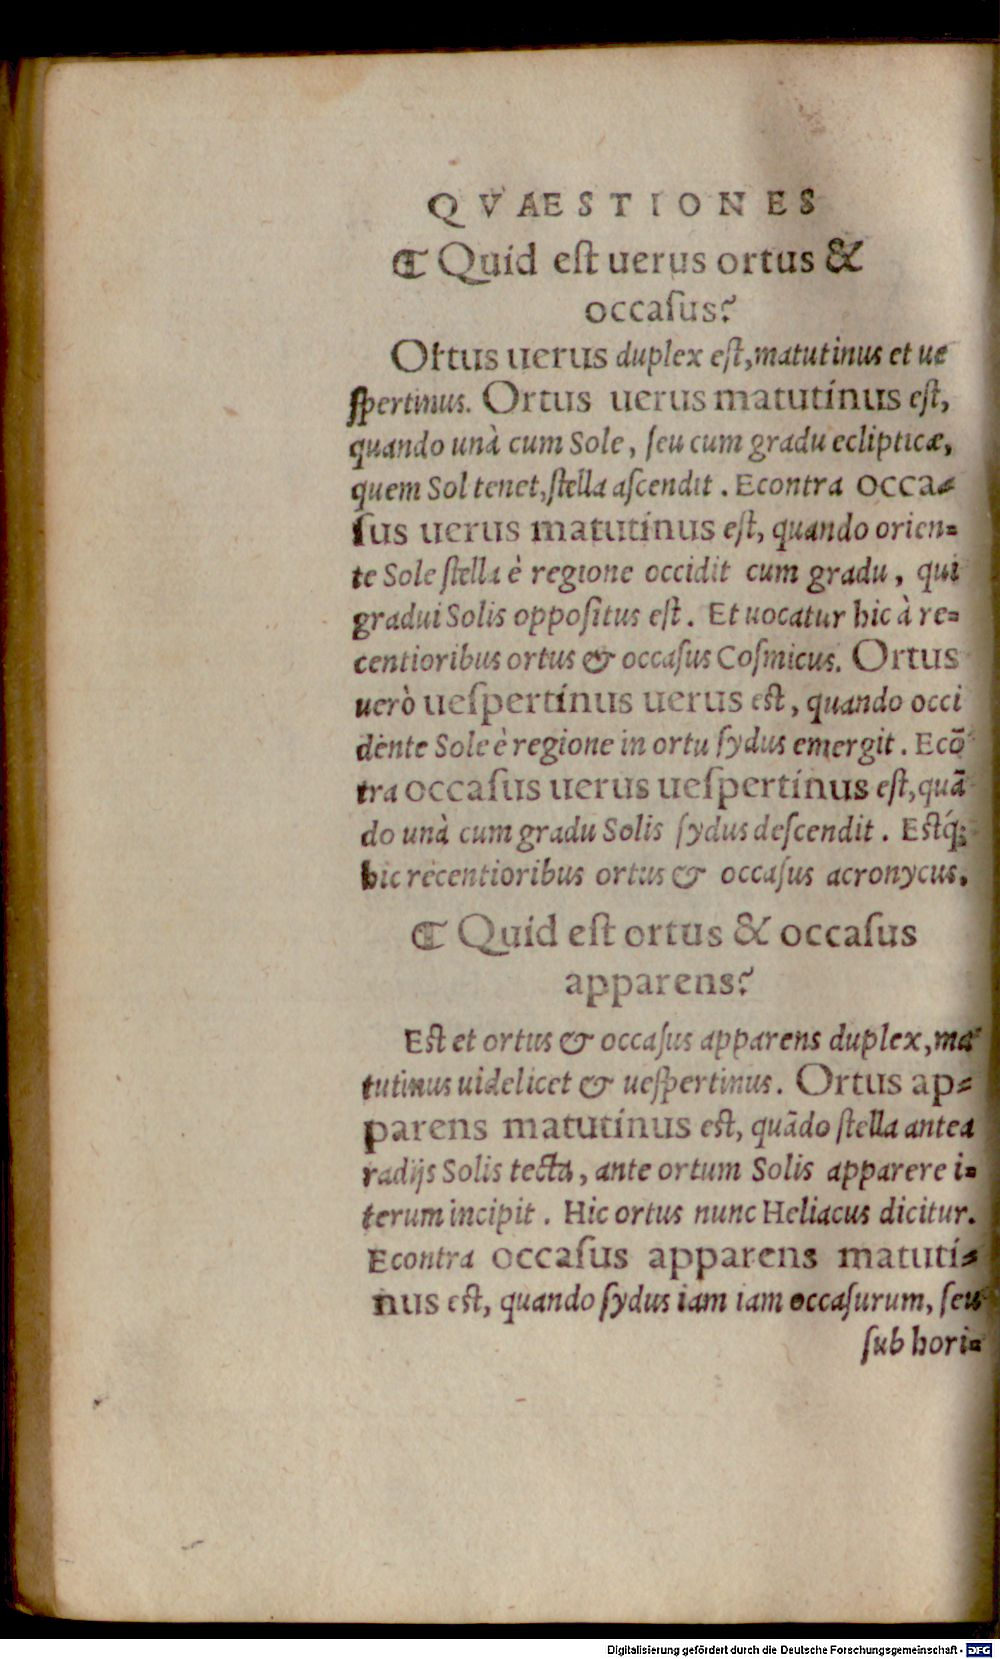 QVAESTIONES
⁋ Quid eſt uerus ortus &
occaſus?
Ortus uerus duplex eſt, matutinus et ue
ſpertinus. Ortus uerus matutinus eſt,
quando unà cum Sole, ſeu cum gradu eclipticæ,
quem Sol tenet, ſtella aſcendit. Econtra occa-
ſus uerus matutinus eſt, quando orien-
te Sole ſtella è regione occidit cum gradu, qui
gradui Solis oppoſitus eſt. Et uocatur hic à re-
centioribus ortus & occaſus Coſmicus. Ortus
uerò ueſpertinus uerus est, quando occi
dente Sole è regione in ortu ſydus emergit. Ecō
tra occaſus uerus ueſpertinus eſt, quā
do unà cum gradu Solis ſydus deſcendit. Eſtq́;
hic recentioribus ortus & occaſus acronycus.
⁋ Quid eſt ortus & occaſus
apparens?
Eſt et ortus & occaſus apparens duplex, ma
tutinus uidelicet & ueſpertinus. Ortus ap-
parens matutinus eſt, quādo ſtella antea
radijs Solis tecta, ante ortum Solis apparere i-
terum incipit. Hic ortus nunc Heliacus dicitur.
Econtra occaſus apparens matuti-
nus eſt, quando ſydus iam iam occaſurum, ſeu
ſub hori-
Digitalisierung gefördert durch die Deutsche Forschungsgemeinschaft - DFG